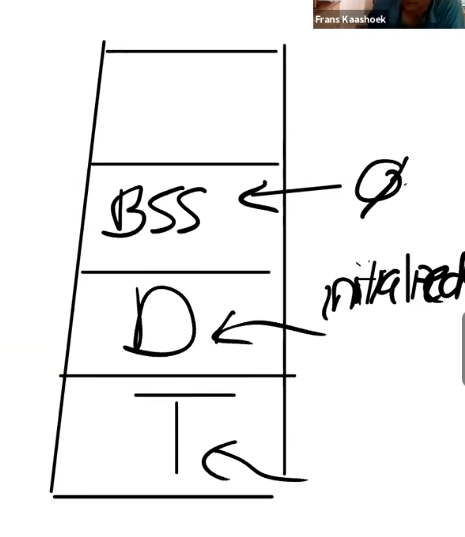 Frans Kaashoek
BSS
Ø
initialized
D
T